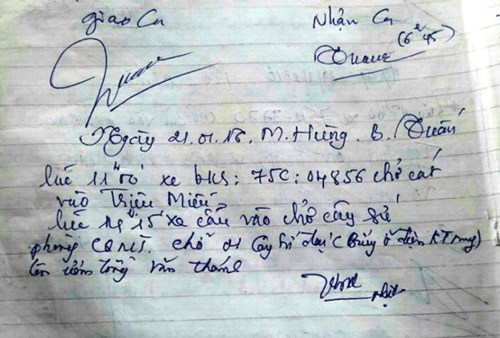 giao Ca Nhận Ca
Quang (6h45)
Ngày 21.01.18. M. Hùng. B. Tuấn
lúc 11h00 xe bks: 75C: 04856 chở cát
vào Triệu Miếu
lúc 14h15 xe cẩu vào chở cây sứ
phòng CSNT. chở 01 cây sứ được ở điện
văn thánh
Nhật